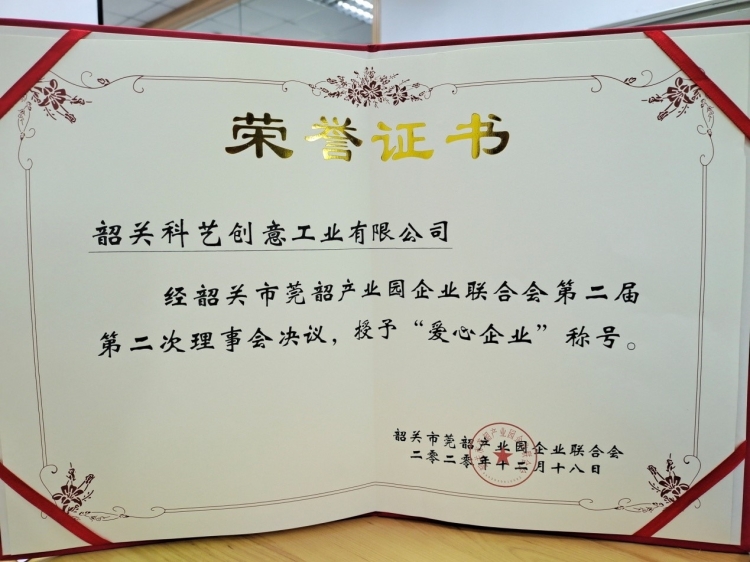 荣誉证书
韶关科艺创意工业有限公司
经韶关市莞韶产业园企业联合会第二届
第二次理事会决议，授予“爱心企业”称号。
韶关市莞韶产业园企业联合会
二零二零年十二月十八日